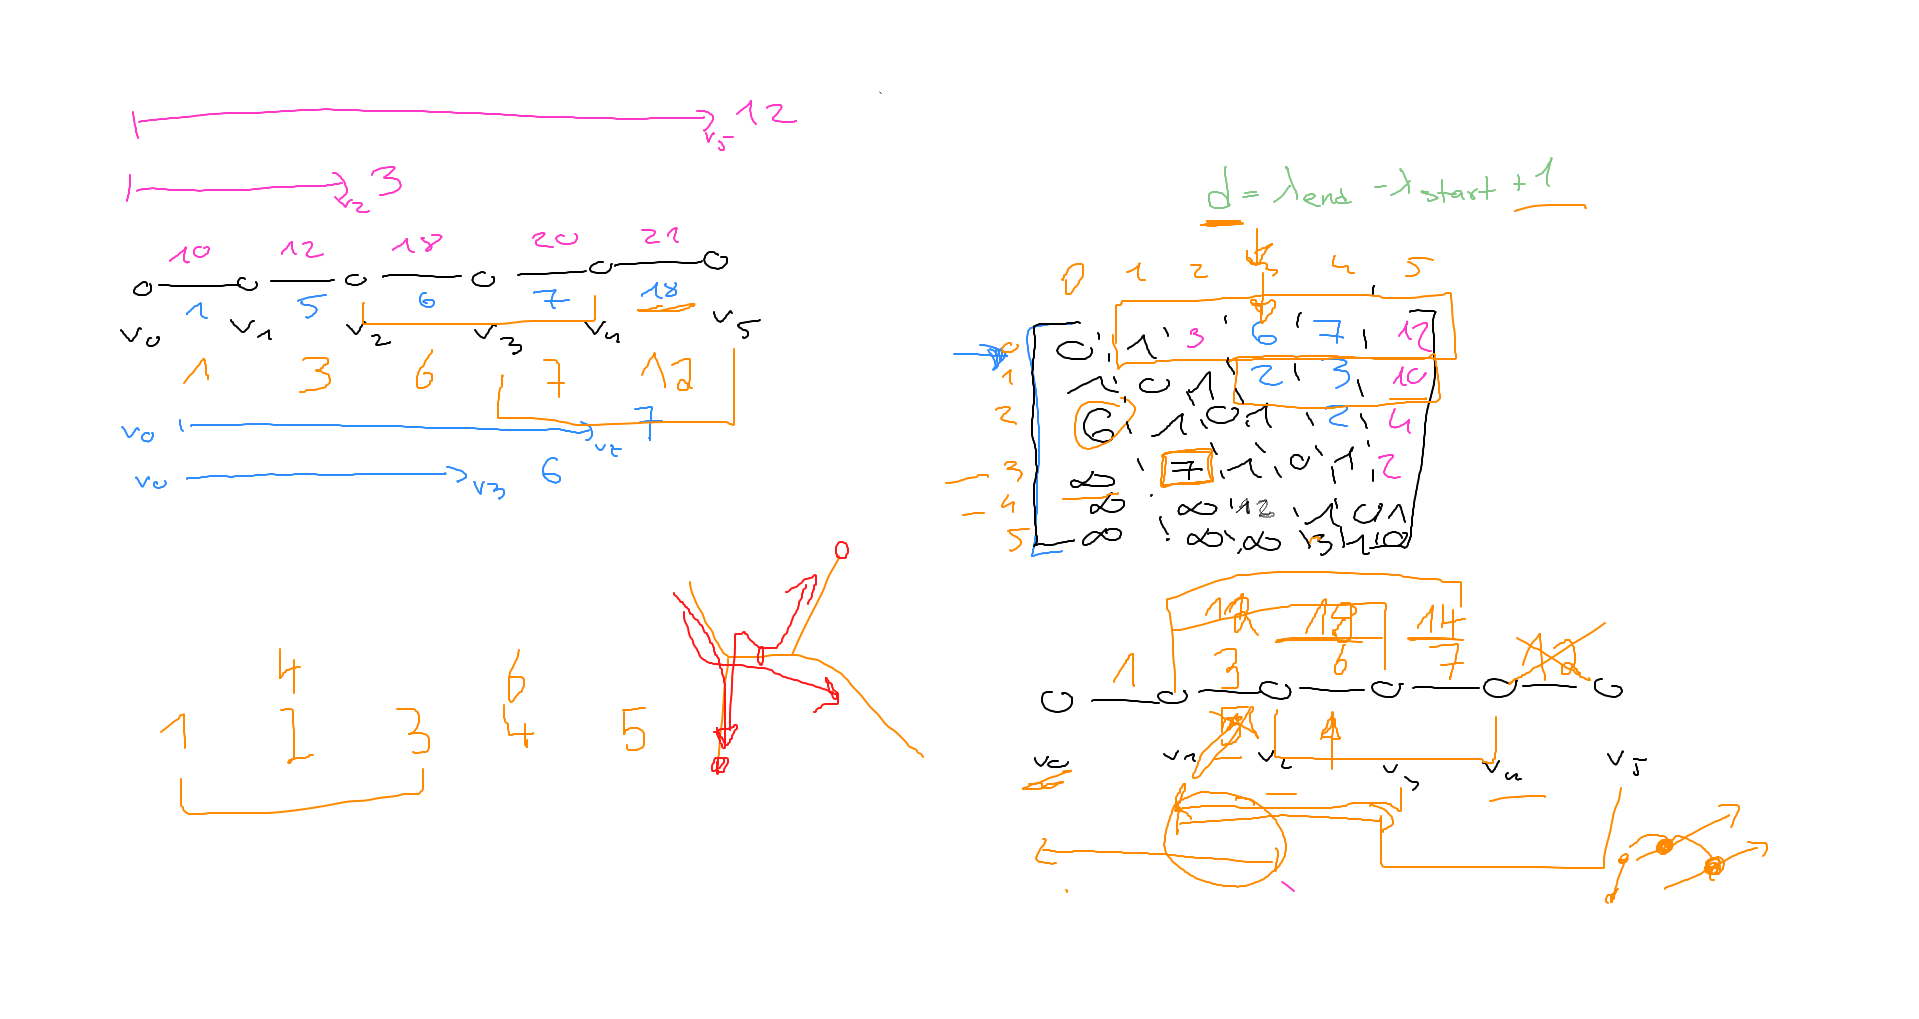 12
v5
3
v2
10 12 18 20 21
1 5 6 7 18
v0 v1 v2 v3 v4 v5
1 3 6 7 12
v0 7
v0 v3 6
4 6
1 2 3 4 5
d = λend - λstart + 1
0 1 2 3 4 5
0 0 1 3 6 7 12
1 1 0 1 2 3 10
2 6 1 0 1 2 4
3 ∞ 7 1 0 1 2
4 ∞ ∞ 12 1 0 1
5 ∞ ∞ ∞ 3 1 0
14
1 3 6 7 12
v0 v1 v2 v3 v4 v5